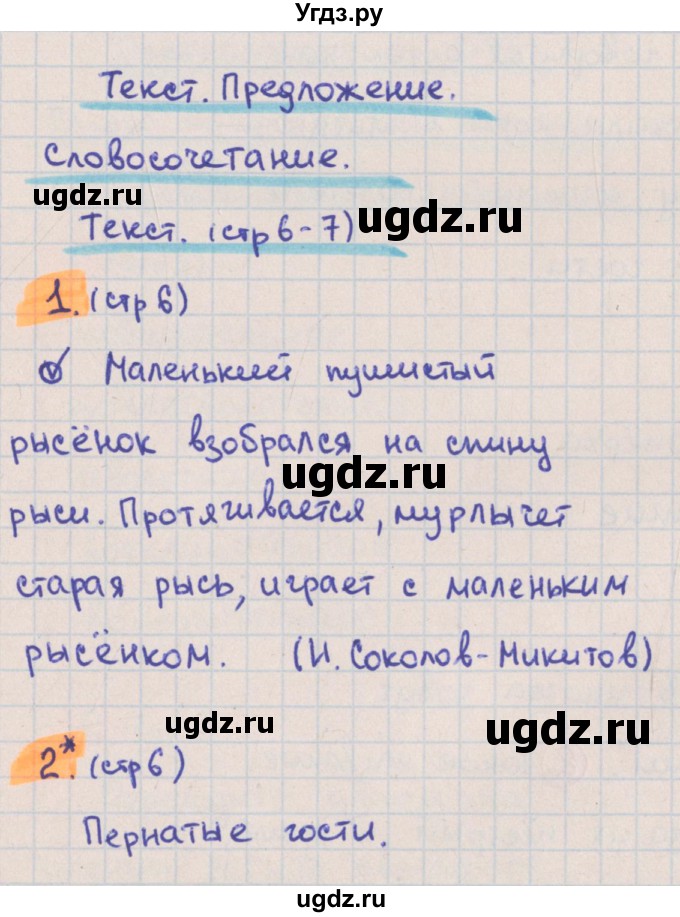 Угдз.ру
Текст. Предложение.
Словосочетание.
ugdz.ru
Текст. (стр 6-7)
ugdz.ru
1. (стр 6)
Маленький пушистый
рысёнок взобрался на спину
ugdz.ru
рыси. Протягивается, мурлычет
старая рысь, играет с маленьким
рысёнком. (И. Соколов-Микитов)
ugdz.ru
ugdz.ru
2*. (стр 6)
Пернатые гости.
ugdz.ru